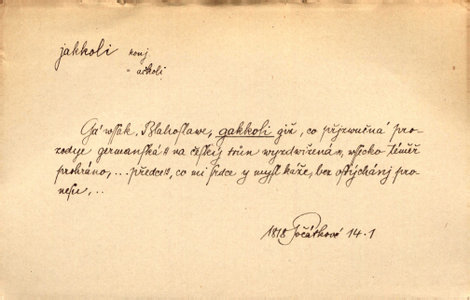 jakkoli konj
= ačkoli
Gá wssak, Blahoslawe, gakkoli giž, co přjzwučná pro-
zodye germanská na český trůn wyzdwižená, wssecko téměř
prohráno, ... předce, co mi srdce y mysl káže, bez ostýchánj pro-
nesu, ..
1818 Počátkowé 14.1